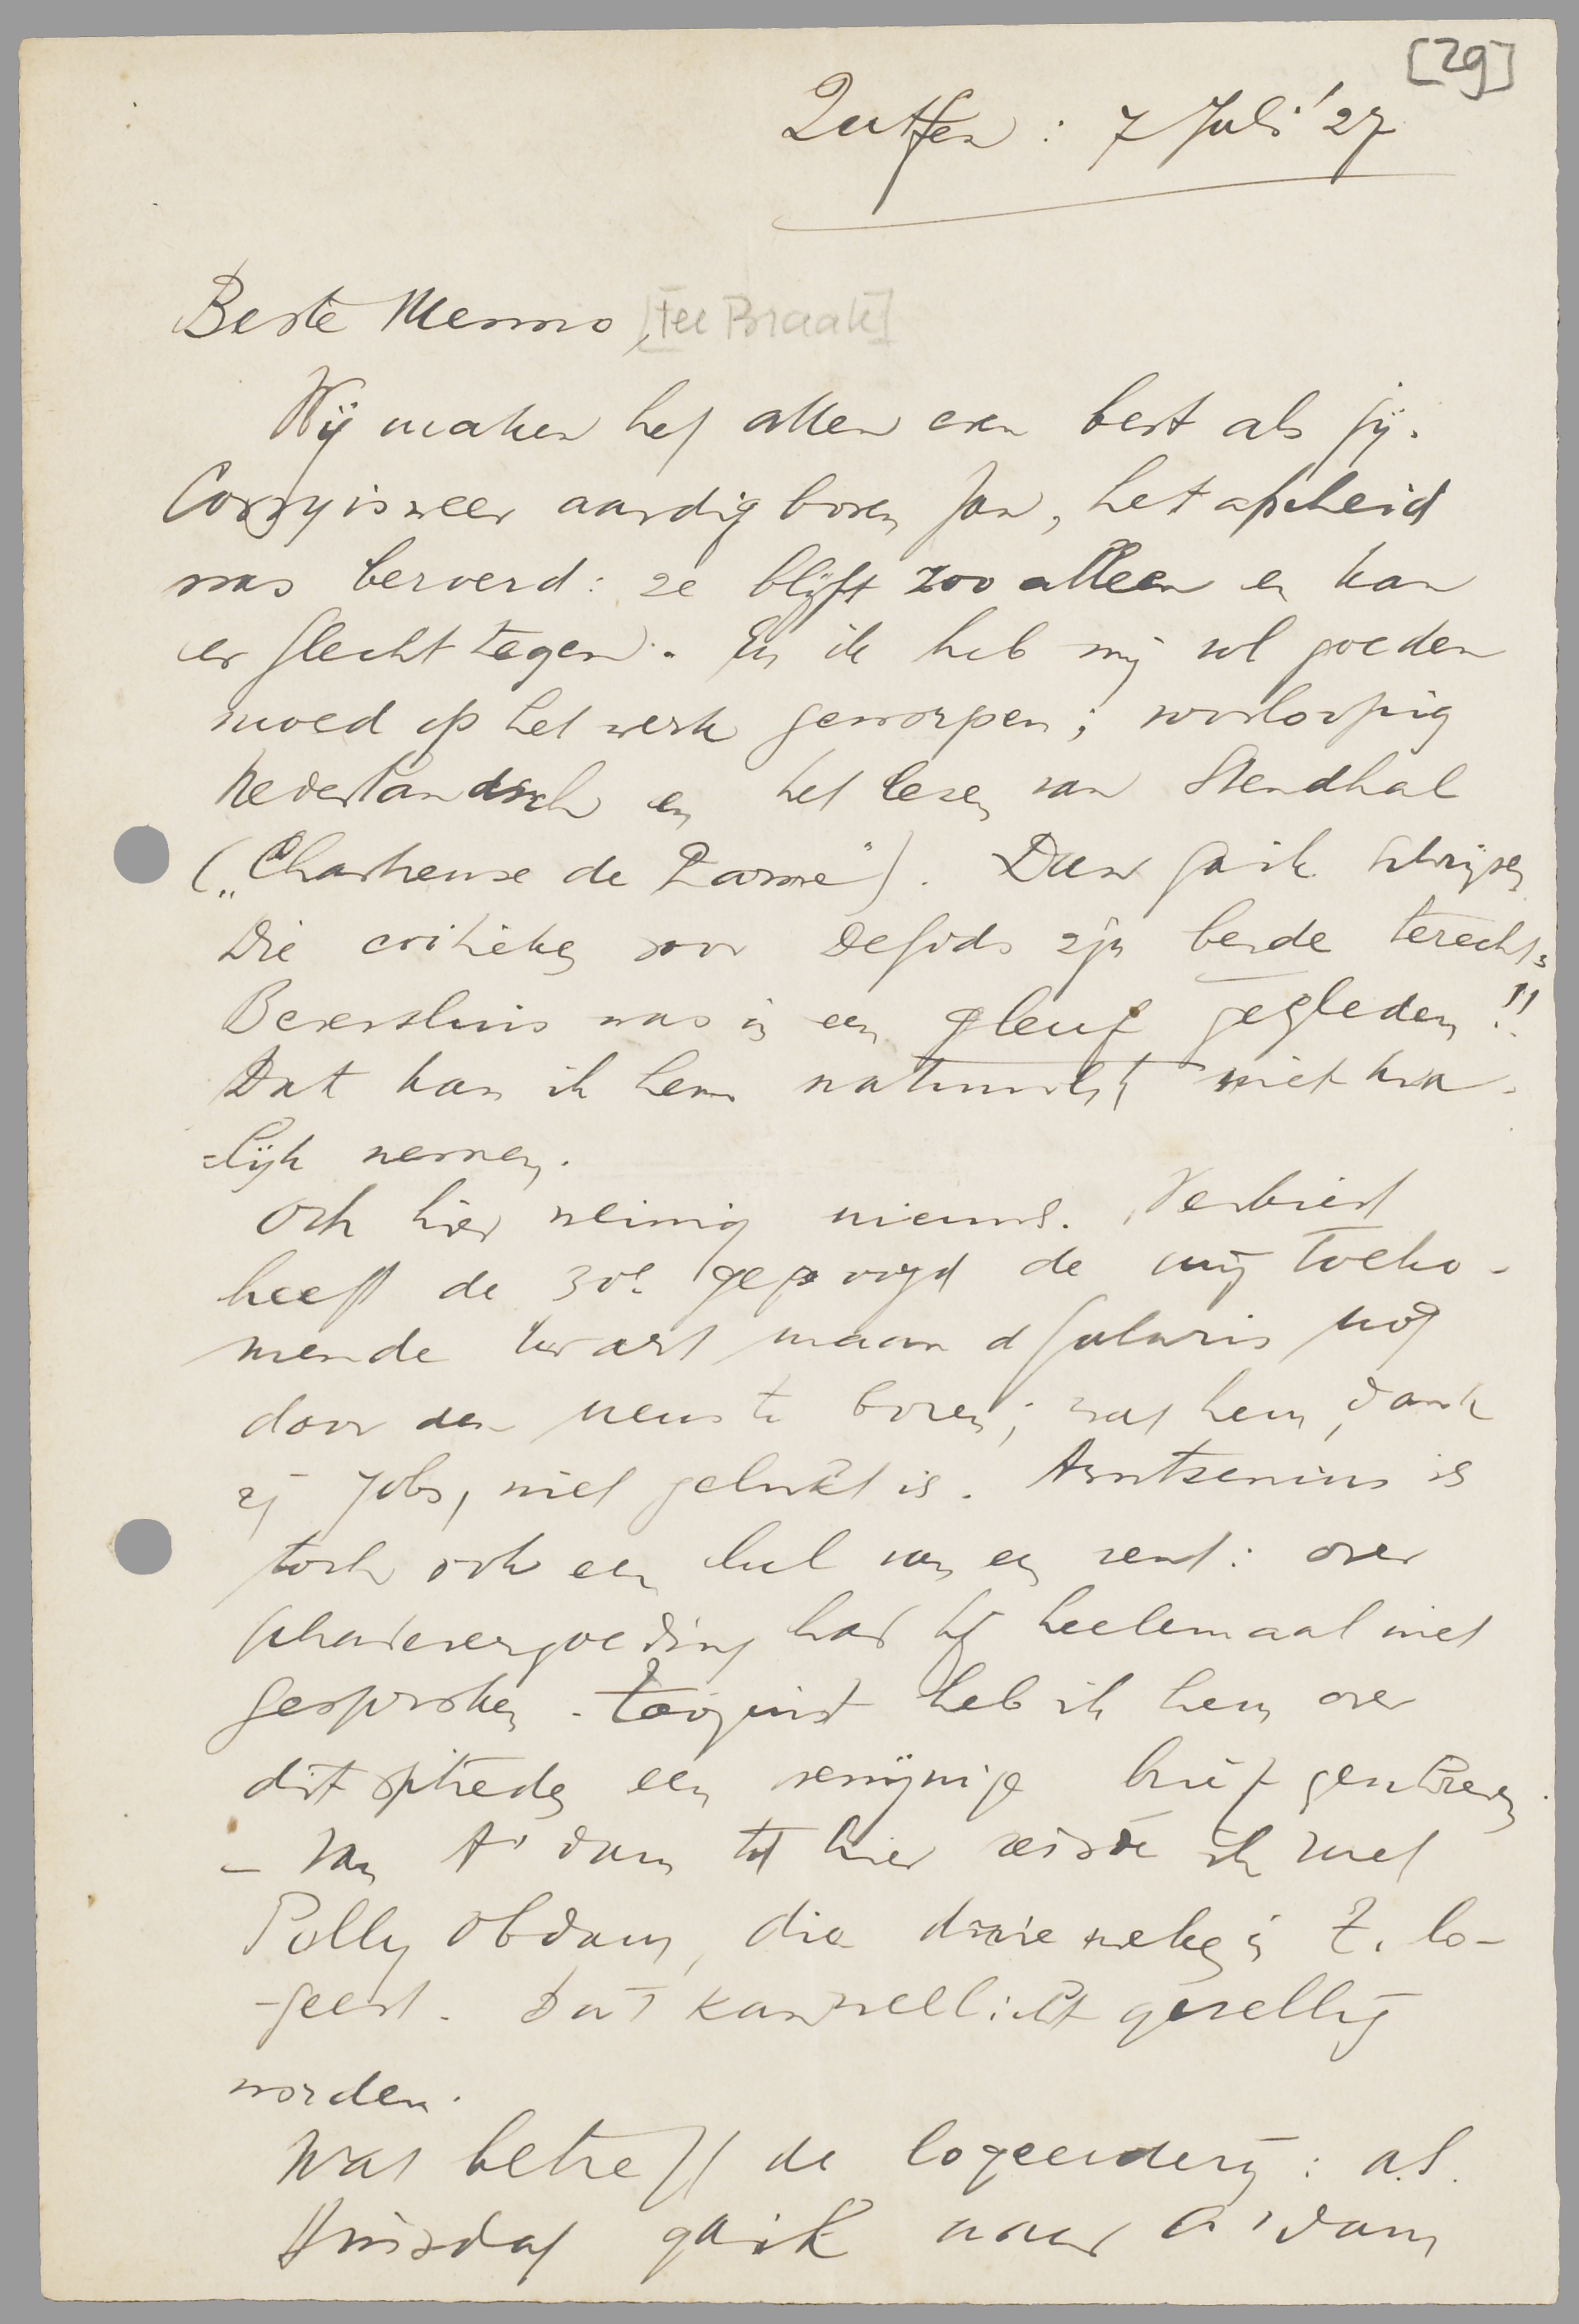 [29]
Zutfen : 7 Juli '27
Beste Menno, [ter Braak]
Wij maken het allen even best als jij.
Corry is weer aardig boven Jan, het afscheid
was beroerd: ze blijft zoo alleen en kan
er slecht tegen. En ik heb mij vol goeden
moed op het werk geworpen; voorloopig
Nederlandsch en het lezen van Stendhal
(„Chartreuse de Parme"). Dan ga ik schrijven
Die critieken voor De Gids zijn beide terecht,
Beversluis was in een gleuf gegleden!!
Dat kan ik hem natuurlijk niet kwa-
-lijk nemen.
Ook hier weinig nieuws. Verbiest
heeft de 30e gepoogd de mij toeko-
mende kwart maand salaris nog
door de neus te boren; wat hem, dank
zij Jobs, niet gelukt is. Arntzenius is
toch ook een lul van een vent: over
schadevergoeding had hij heelemaal niet
gesproken. Terzijnst heb ik hem over
dit optreden een venijnige brief geschreven.
- Van A'dam tot hier reisde ik met
Polly Obdam, die drie weken in Z. lo-
-geert. Dat kan wellicht gezellig
worden.
Wat betreft de logeerderij: a.s.
Dinsdag ga ik naar A'dam